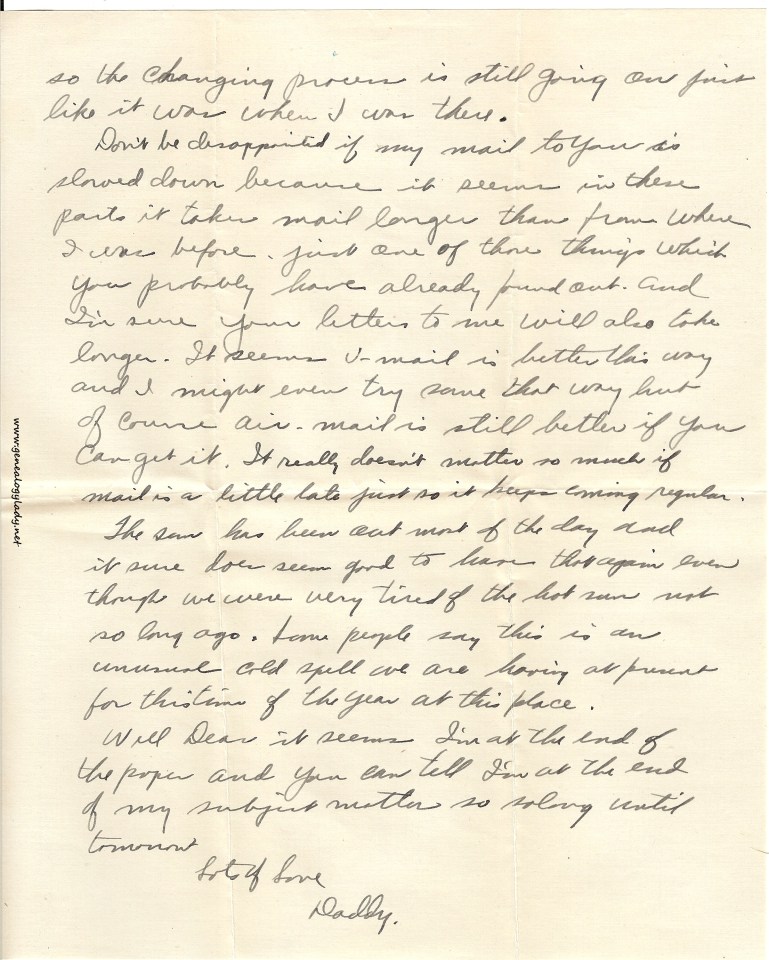 so the changing process is still going on just
like it was when I was there.
Don't be disappointed if my mail to you is
slowed down because it seems in these
parts it takes mail longer than from where
I was before. just one of those things which
you probably have already found out. and
I'm sure your letters to me will also take
longer. It seems V-mail is better this way
and I might even try some that way but
of course air-mail is still better if you
can get it. It really doesn't matter so much if
mail is a little late just so it keeps coming regular.
The sun has been out most of the day and
it sure does seem good to have that again even
though we were very tired of the hot sun not
so long ago. Some people say this is an
unusual cold spell we are having at present
for this time of the year at this place.
Well Dear it seems I'm at the end of
the paper and you can tell I'm at the end
of my subject matter so solong until
tomorrow
Lots of Love
Daddy.
www.genealogylady.net